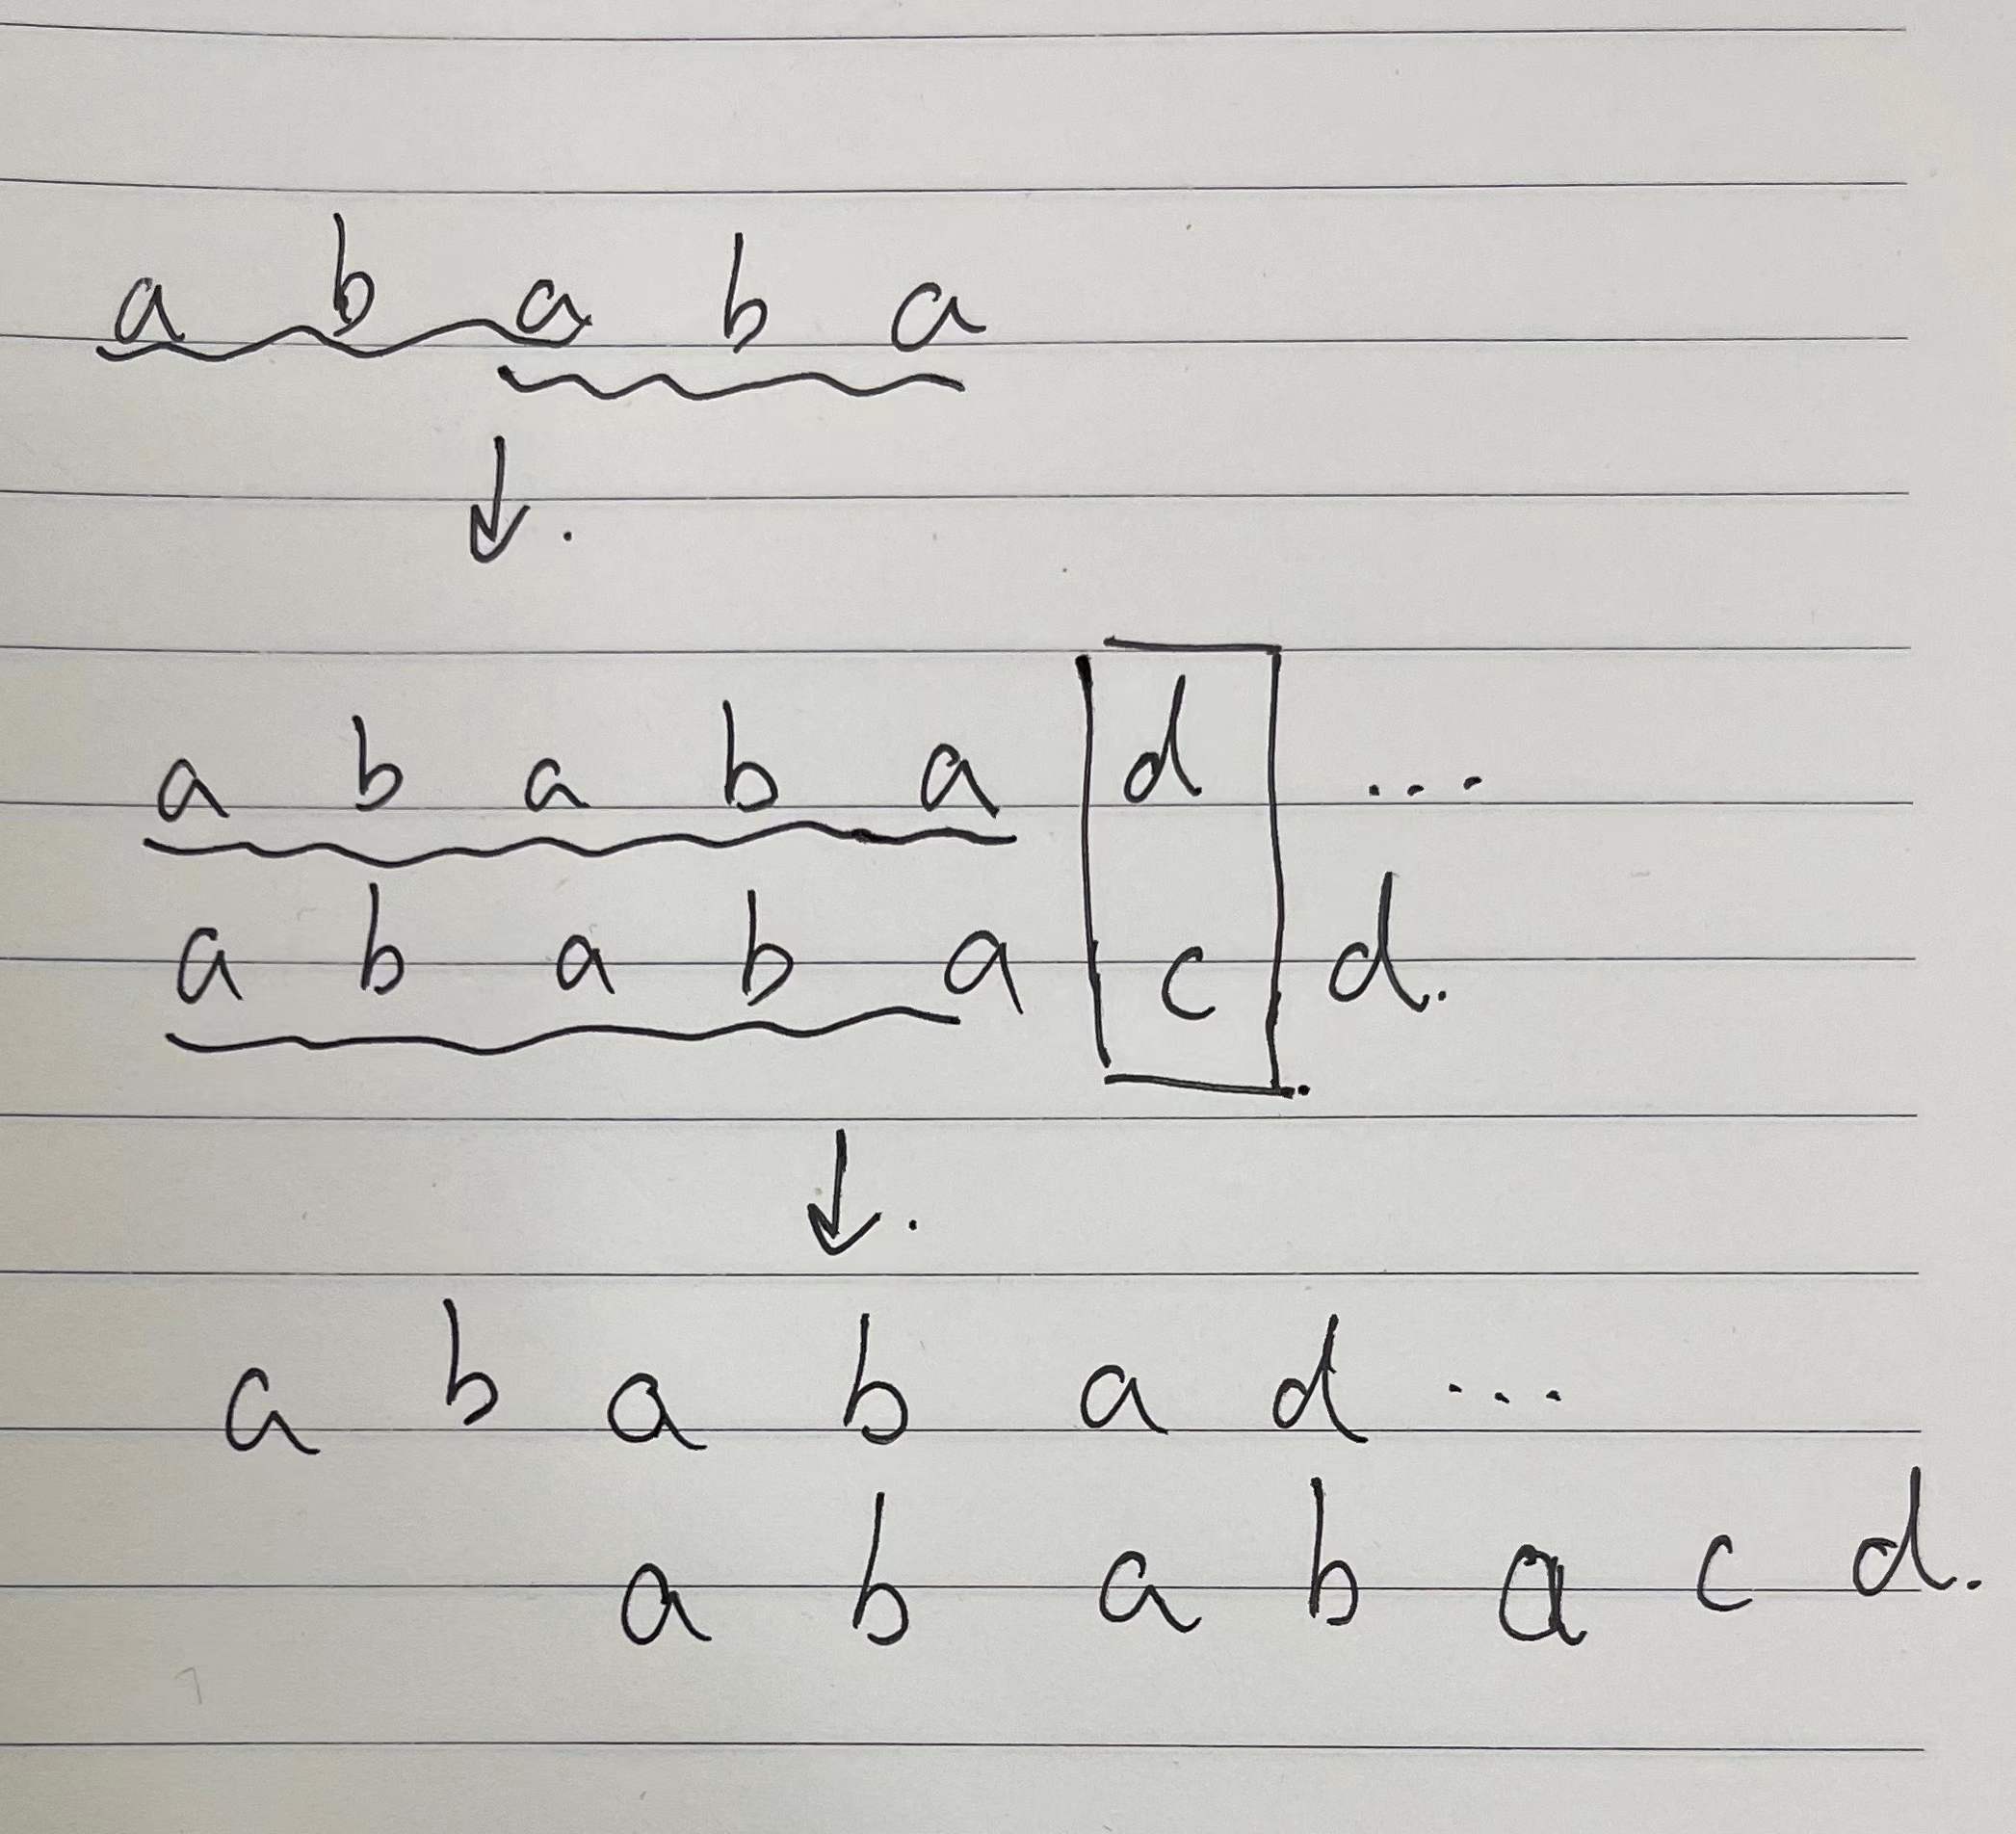 a b a b a
↓.
a b a b a d ...
a b a b a c d.
↓.
a b a b a d ...
a b a b a c d.